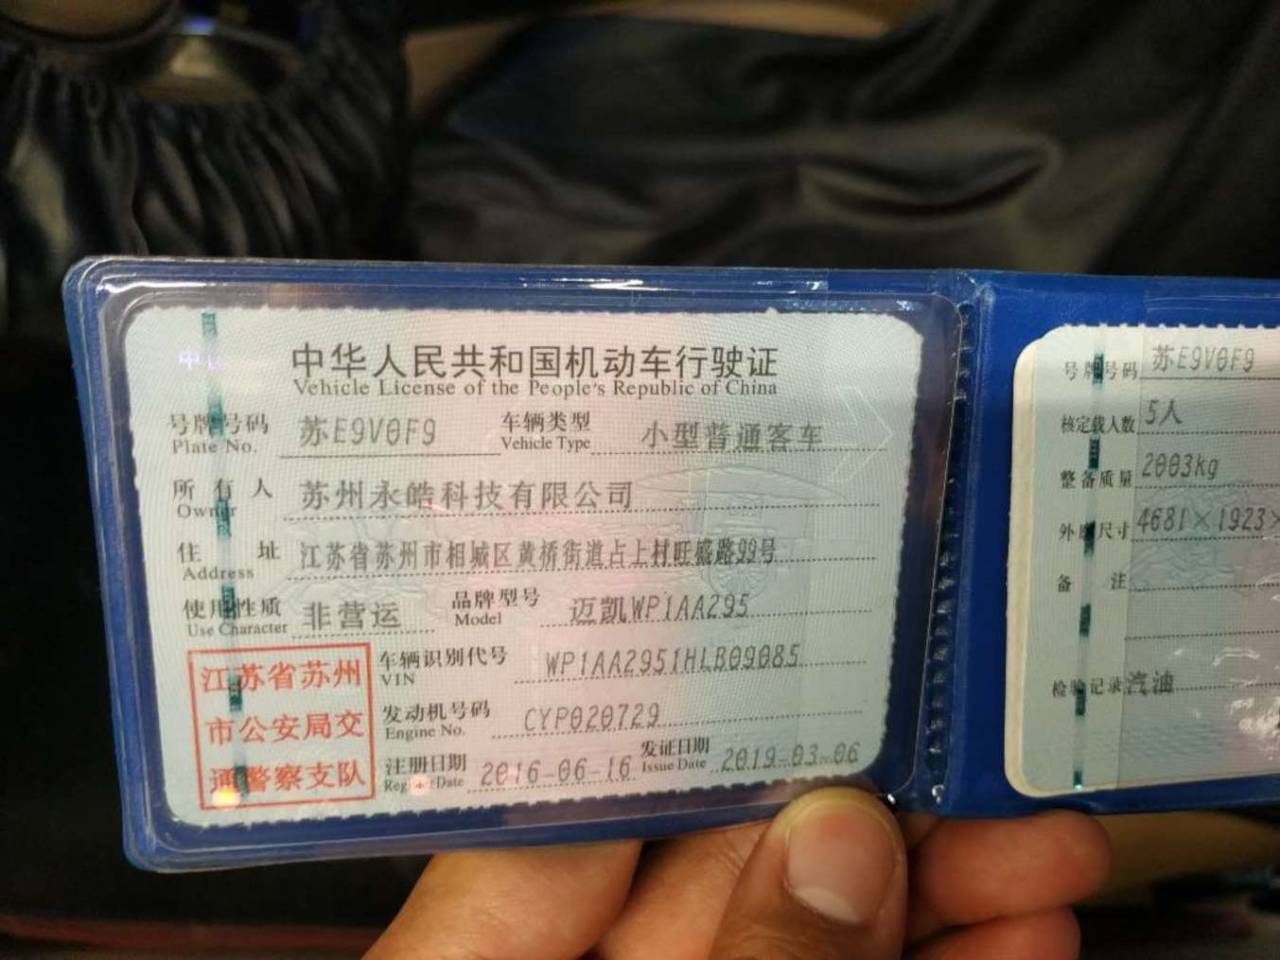 中华人民共和国机动车行驶证
Vehicle License of the People's Republic of China
号牌号码 苏E9V0F9 车辆类型 小型普通客车
Plate No. Vehicle Type
所有人 苏州永皓科技有限公司
Owner
住址 江苏省苏州市相城区黄桥街道占上村旺盛路99号
Address
使用性质 非营运 品牌型号 迈凯WP1AA295
Use Character Model
江苏省苏州
市公安局交
通警察支队
车辆识别代号 WP1AA2951HLB09085
VIN
发动机号码 CYP020729
Engine No.
注册日期 2016-06-16 发证日期 2019-03-06
Date Issue Date
号牌号码 苏E9V0F9
核定载人数 5人
整备质量 2003kg
外廓尺寸 4681×1923×
备注
检验记录 汽油